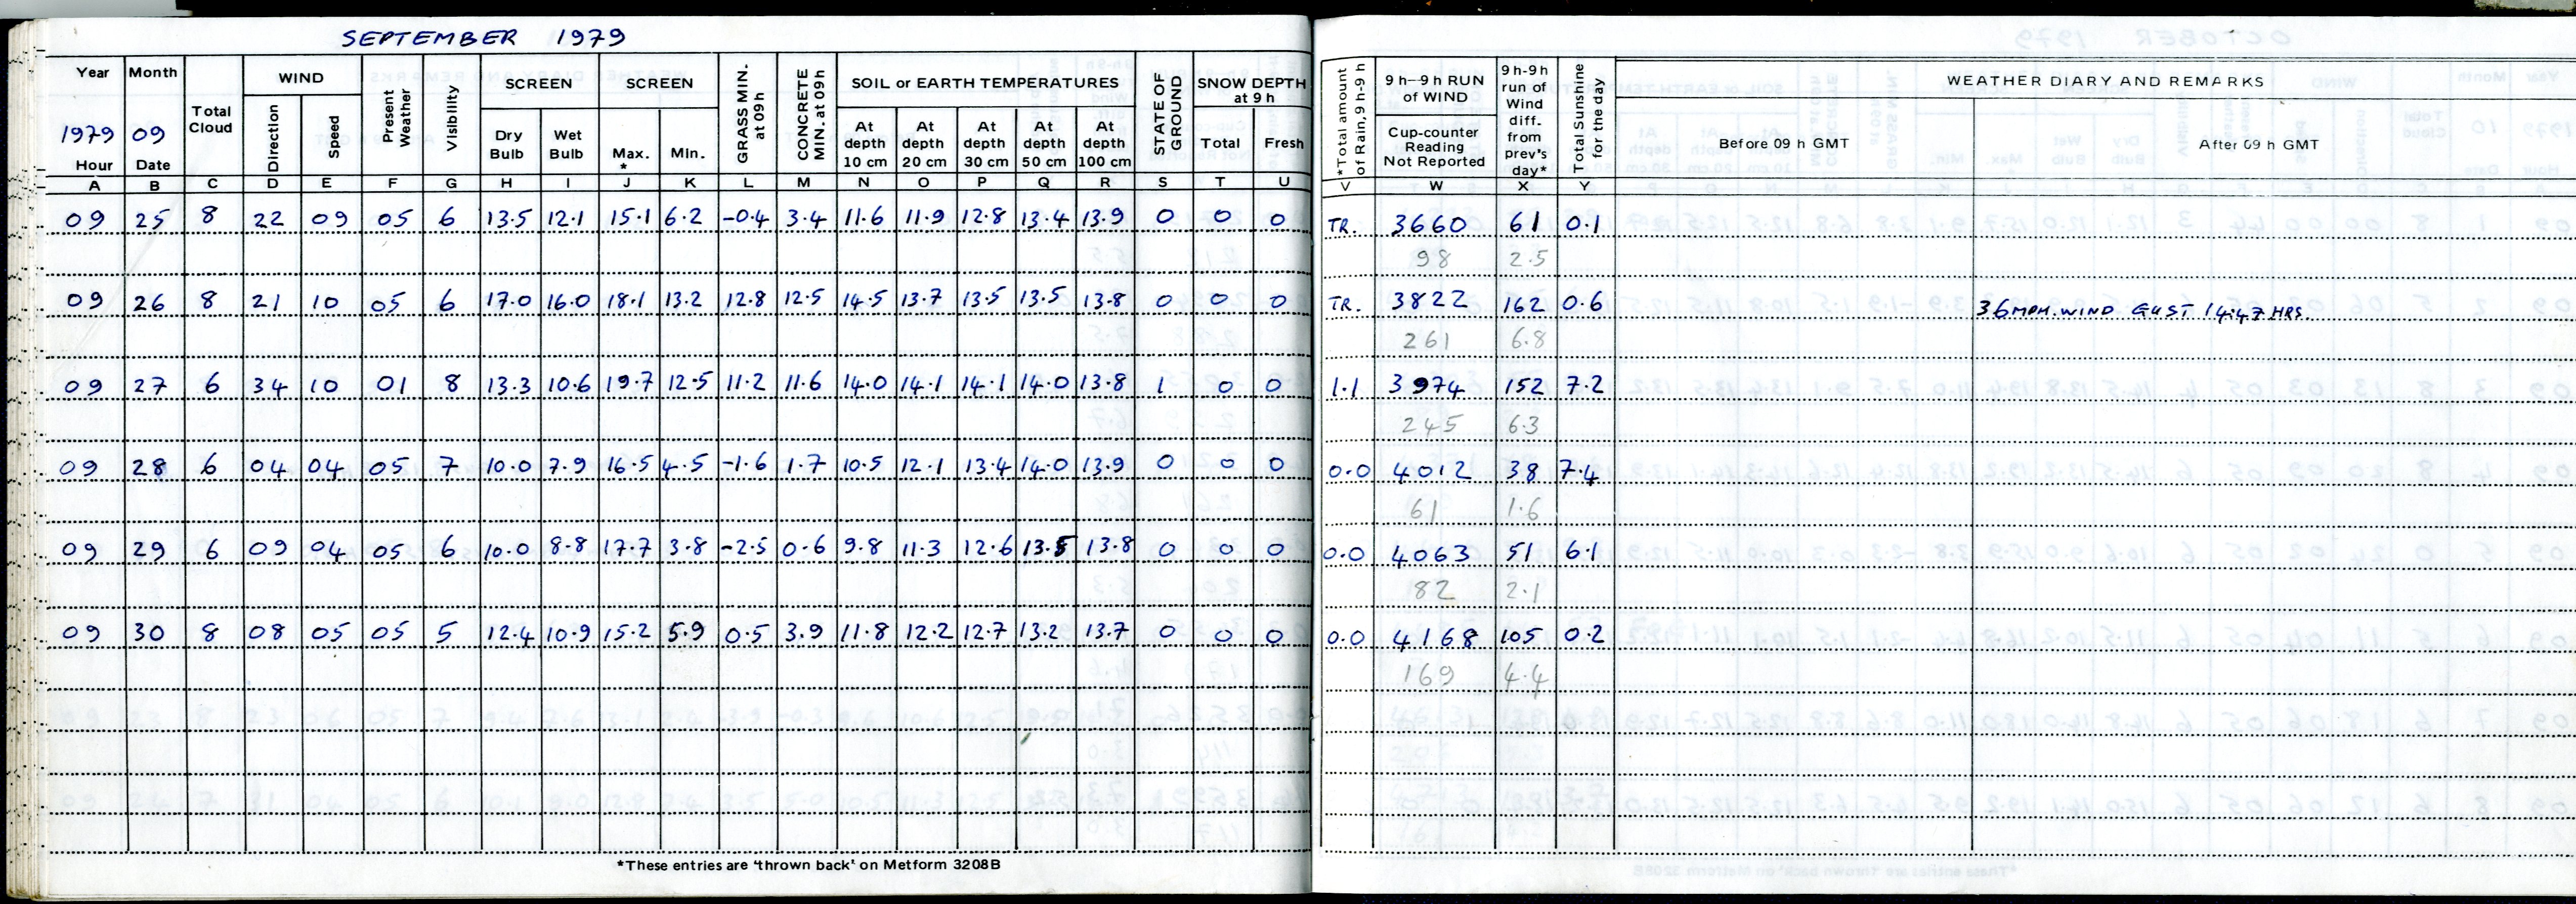 SEPTEMBER 1979
Year Month Total Cloud WIND Present Weather Visibility SCREEN SCREEN GRASS MIN. at 09h CONCRETE MIN. at 09h SOIL or EARTH TEMPERATURES STATE OF GROUND SNOW DEPTH at 9 h *Total amount of Rain, 9h-9h 9 h-9 h RUN of WIND 9 h-9h run of Wind diff. from prev's day* Total Sunshine for the day WEATHER DIARY AND REMARKS
1979 09 Direction Speed Dry Bulb Wet Bulb Max. * Min. At depth 10 cm At depth 20 cm At depth 30 cm At depth 50 cm At depth 100 cm Total Fresh Cup-counter Reading Not Reported Before 09 h GMT After 09 h GMT
Hour Date
A B C D E F G H I J K L M N O P Q R S T U V W X Y
09 25 8 22 09 05 6 13.5 12.1 15.1 6.2 -0.4 3.4 11.6 11.9 12.8 13.4 13.9 0 0 0 TR. 3660 61 0.1
98 2.5
09 26 8 21 10 05 6 17.0 16.0 18.1 13.2 12.8 12.5 14.5 13.7 13.5 13.5 13.8 0 0 0 TR. 3822 162 0.6 36 MPH. WIND GUST 14:47 HRS.
261 6.8
09 27 6 34 10 01 8 13.3 10.6 19.7 12.5 11.2 11.6 14.0 14.1 14.1 14.0 13.8 1 0 0 1.1 3974 152 7.2
245 6.3
09 28 6 04 04 05 7 10.0 7.9 16.5 4.5 -1.6 1.7 10.5 12.1 13.4 14.0 13.9 0 0 0 0.0 4012 38 7.4
61 1.6
09 29 6 09 04 05 6 10.0 8.8 17.7 3.8 -2.5 0.6 9.8 11.3 12.6 13.5 13.8 0 0 0 0.0 4063 51 6.1
82 2.1
09 30 8 08 05 05 5 12.4 10.9 15.2 5.9 0.5 3.9 11.8 12.2 12.7 13.2 13.7 0 0 0 0.0 4168 105 0.2
169 4.4
*These entries are 'thrown back' on Metform 3208B